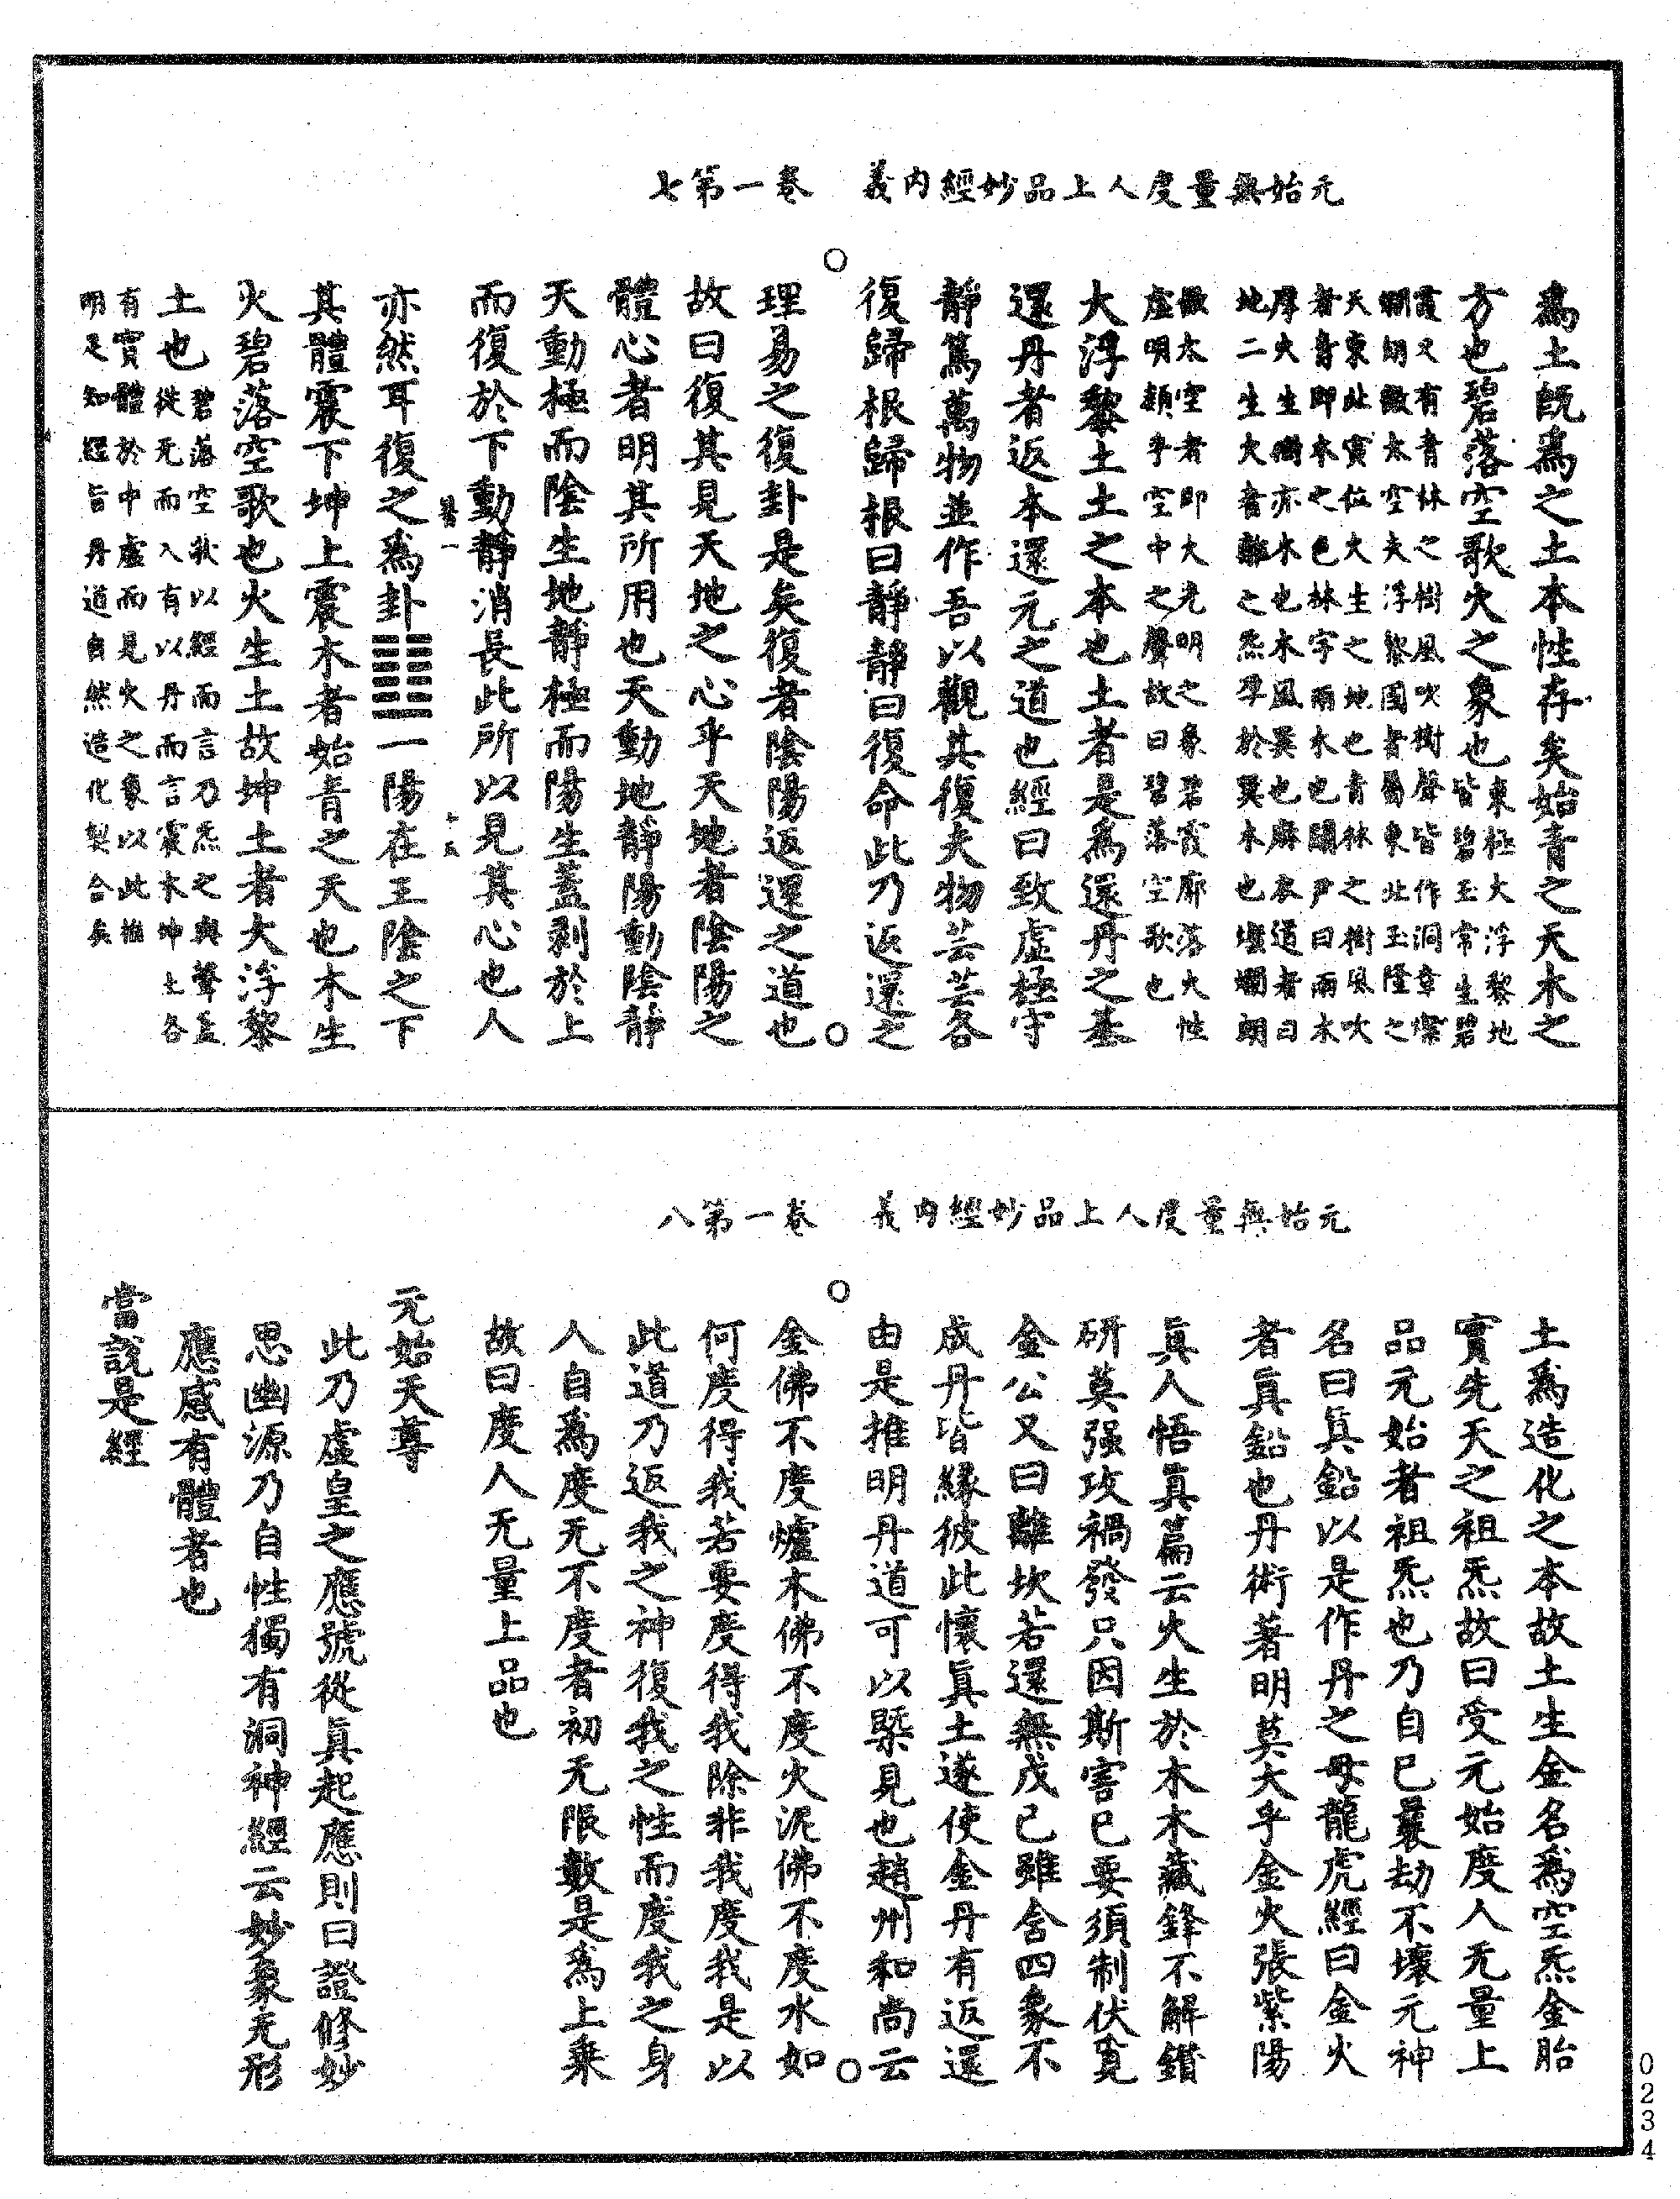 元始無量度人上品妙經內義　卷一第七
爲土旣爲之土本性存矣始青之天木之
方也碧落空歌火之象也東極大浮黎地
皆碧玉常生碧
霞又有青林之樹風吹樹聲皆作洞章燦
爛朗徹太空夫浮黎國者屬東北玉隆之
天東此寅位火生之地也青林之樹風吹
者青即木之色林字兩木也關尹曰兩木
摩火生樹亦木也木風巽也麻衣道者曰
地二生火者離之炁孕於巽木也爛朗
徹太空者即大光明之象碧霞廓落火性
虛明類乎空中之聲故曰碧落空歌也
大浮黎土土之本也土者是爲還丹之基
還丹者返本還元之道也經曰致虛極守
靜篤萬物並作吾以觀其復夫物芸芸各
復歸根歸根曰靜靜曰復命此乃返還之
理易之復卦是矣復者陰陽返還之道也
故曰復其見天地之心乎天地者陰陽之
體心者明其所用也天動地靜陽動陰靜
天動極而陰生地靜極而陽生蓋剥於上
而復於下動靜消長此所以見其心也人
亦然耳復之爲卦䷗一陽在五陰之下
其體震下坤上震木者始青之天也木生
火碧落空歌也火生土故坤土者大浮黎
土也碧落空歌以經而言乃炁之與聲蓋
從无而入有以丹而言震木坤土各
有實體於中虛而見火之象以此推
明足知經旨丹道自然造化契合矣
元始無量度人上品妙經內義　卷一第八
土爲造化之本故土生金名爲空炁金胎
實先天之祖炁故曰受元始度人无量上
品元始者祖炁也乃自己曩劫不壞元神
名曰眞鉛以是作丹之母龍虎經曰金火
者眞鉛也丹術著明莫大乎金火張紫陽
眞人悟眞篇云火生於木木藏鋒不解鑽
研莫强攻禍發只因斯害己要須制伏覓
金公又曰離坎若還無戊己雖含四象不
成丹皆緣彼此懷眞土遂使金丹有返還
由是推明丹道可以槩見也趙州和尚云
金佛不度爐木佛不度火泥佛不度水如
何度得我若要度得我除非我度我是以
此道乃返我之神復我之性而度我之身
人自爲度无不度者初无限數是爲上乘
故曰度人无量上品也
元始天尊
此乃虛皇之應號從眞起應則曰證修妙
思幽源乃自性獨有洞神經云妙象无形
應感有體者也
當說是經
0234